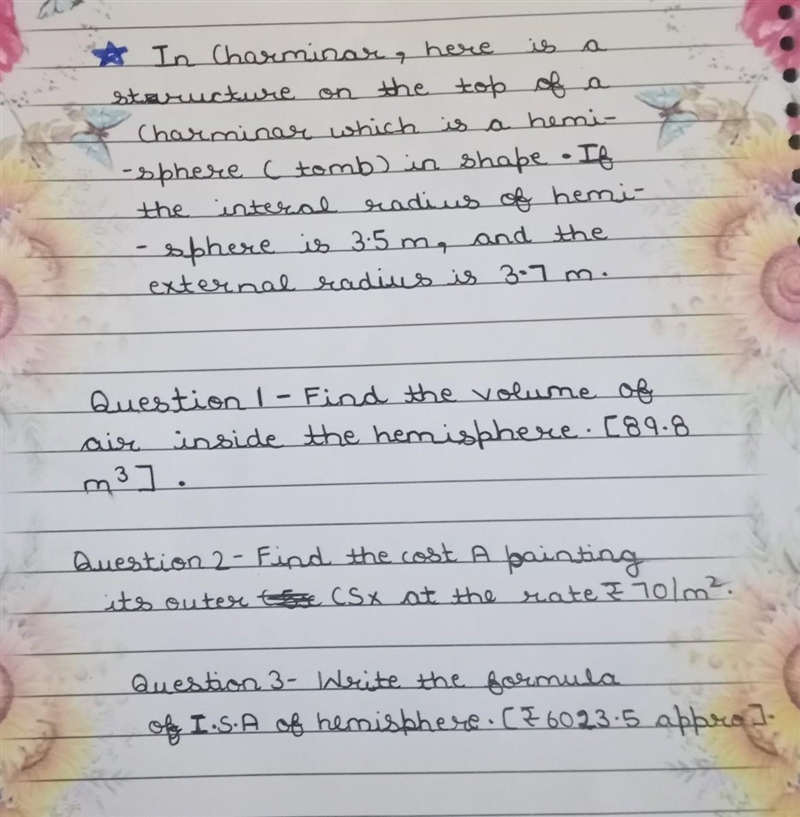 ☆ In Charminar, here is a
structure on the top of a
Charminar which is a hemi-
-sphere (tomb) in shape. If
the interal radius of hemi-
- sphere is 3.5 m, and the
external radius is 3.7 m.
Question 1 - Find the volume of
air inside the hemisphere. [89.8
m³] .
Question 2 - Find the cost A painting
its outer CSx at the rate ₹ 70/m².
Question 3 - Write the formula
of I.S.A of hemisphere. [₹6023.5 appro].